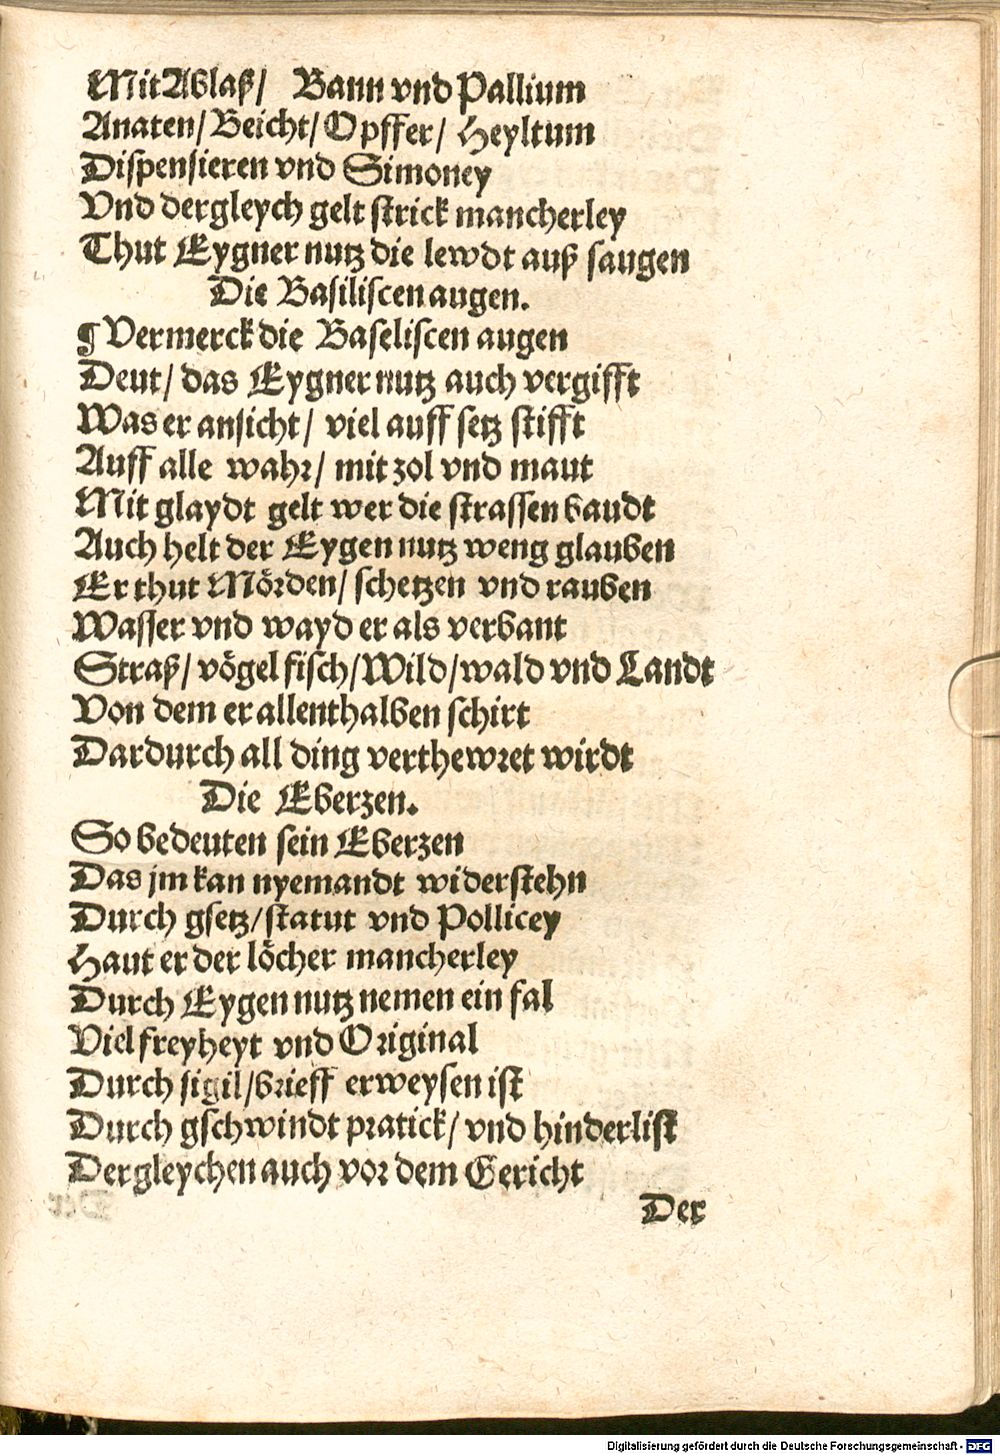 Mit Ablaß/ Bann vnd Pallium
Anaten/Beicht/Opffer/ Heyltum
Dispensieren vnd Simoney
Vnd dergleych gelt strick mancherley
Thut Eygner nutz die lewdt auß saugen
Die Basiliscen augen.
¶ Vermerck die Baseliscen augen
Deut/ das Eygner nutz auch vergifft
Was er ansicht/ viel auff setz stifft
Auff alle wahr/ mit zol vnd maut
Mit glaydt gelt wer die strassen baudt
Auch helt der Eygen nutz weng glauben
Er thut Mörden/ schetzen vnd rauben
Wasser vnd wayd er als verbant
Straß/ vögel fisch/Wild/wald vnd Landt
Von dem er allenthalben schirt
Dardurch all ding verthewret wirdt
Die Eberzen.
So bedeuten sein Eberzen
Das jm kan nyemandt widerstehn
Durch gsetz/statut vnd Pollicey
Haut er der löcher mancherley
Durch Eygen nutz nemen ein fal
Viel freyheyt vnd Original
Durch sigil/brieff erweysen ist
Durch gschwindt pratick/ vnd hinderlist
Dergleychen auch vor dem Gericht
Der
Digitalisierung gefördert durch die Deutsche Forschungsgemeinschaft - DFG